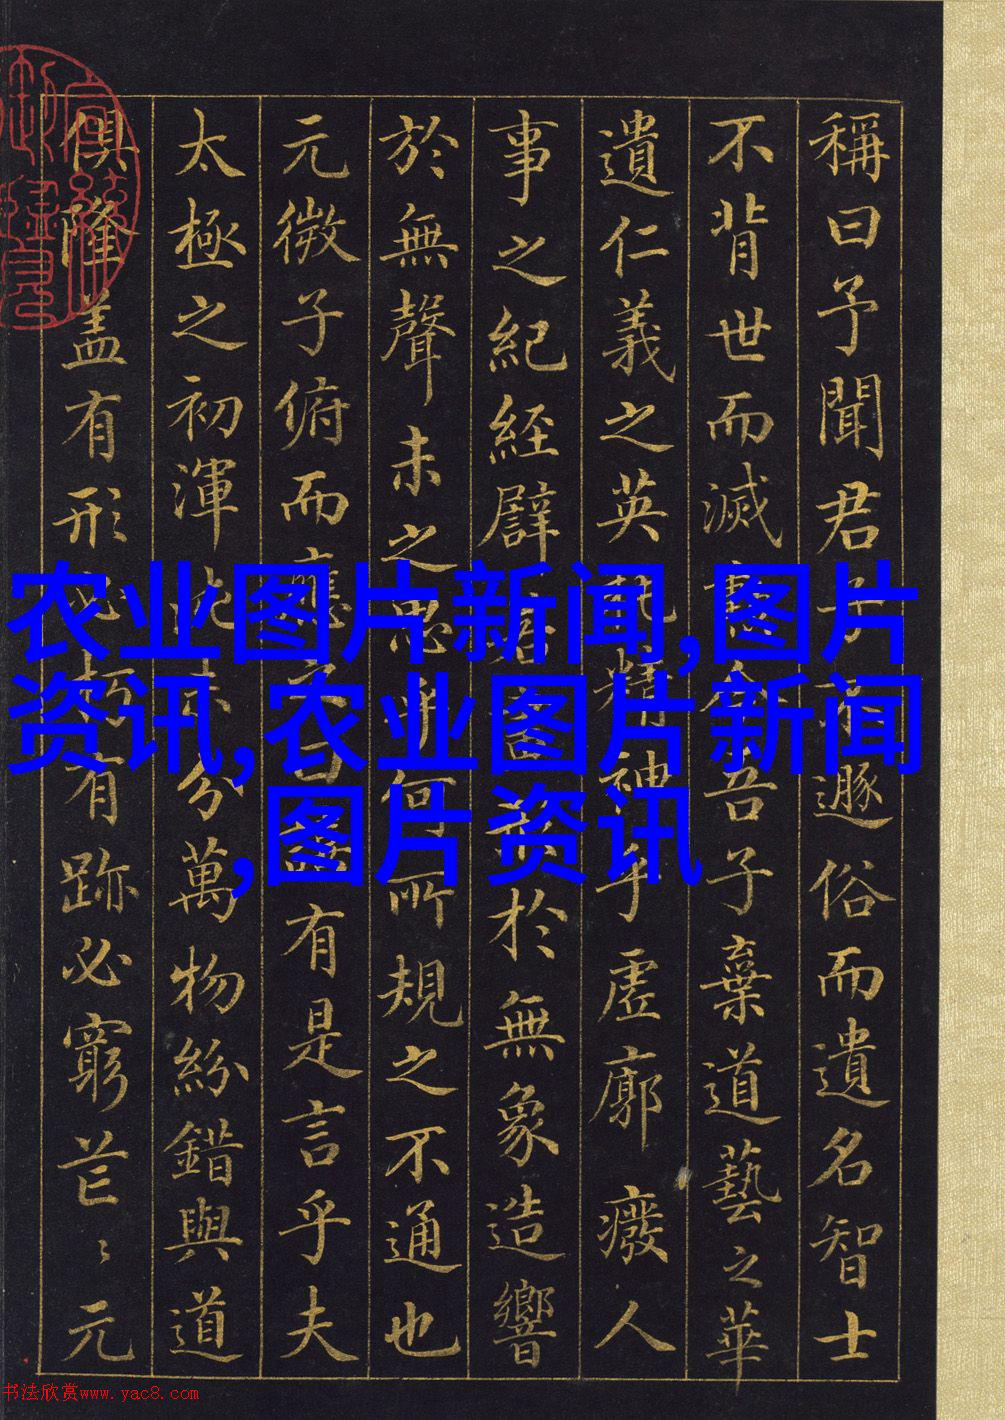 稱曰予聞君子不遯俗而遺名智士
不背世而滅勲今吾子棄道藝之華
遺仁義之英躭精神乎虛廓廢人
事之紀經譬若畫於無象造響
於無聲未之思乎何所規之不通也
元微子俯而應之曰有是言乎夫
太極之初渾沌未分萬物紛錯與道
俱隆盖有形必朽有跡必窮芒〻元
农业图片新闻,图片
资讯,农业图片新闻
,图片资讯
书法欣赏www.yac8.com